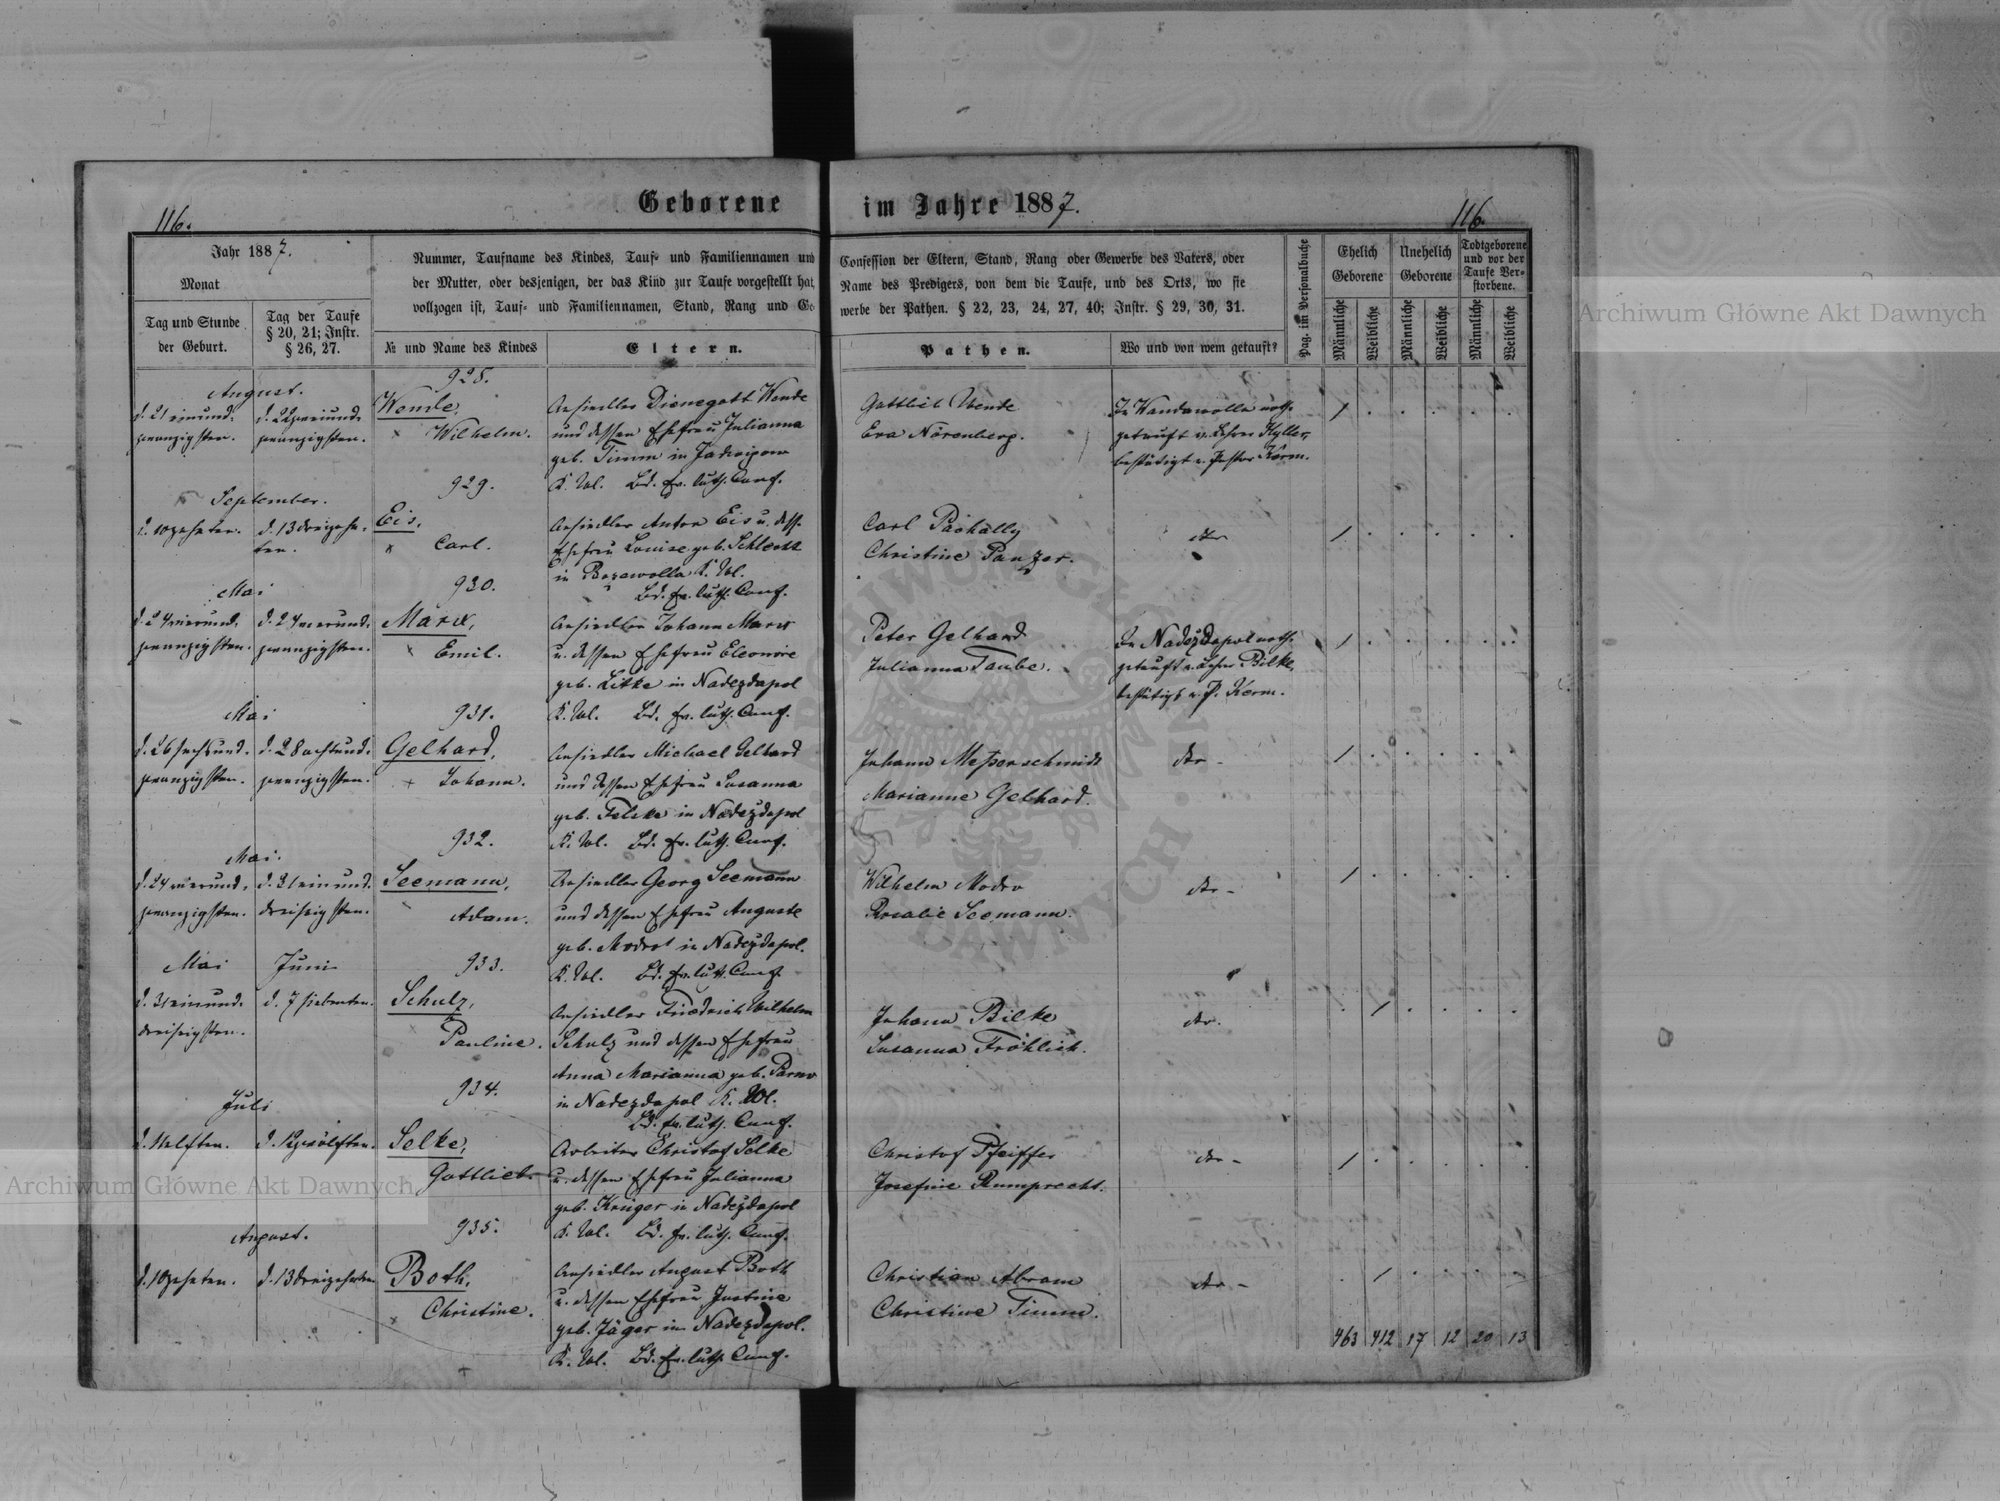 Geborene im Jahre 1887.
116.
116.
Jahr 1887.
Monat
Tag und Stunde
der Geburt.
Tag der Taufe
§ 20, 21; Instr.
§ 26, 27.
Nummer, Taufname des Kindes, Tauf- und Familiennamen und
der Mutter, oder desjenigen, der das Kind zur Taufe vorgestellt hat,
vollzogen ist, Tauf- und Familiennamen, Stand, Rang und Ge
№ und Name des Kindes
Eltern.
Confession der Eltern, Stand, Rang oder Gewerbe des Vaters, oder
Name des Predigers, von dem die Taufe, und des Orts, wo sie
werbe der Pathen. § 22, 23, 24, 27, 40; Instr. § 29, 30, 31.
Pathen.
Wo und von wem getauft?
Pag. im Personalbuche
Ehelich
Geborene
Unehelich
Geborene
Todtgeborene
und vor der
Taufe Ver-
storbene.
Männliche
Weibliche
Männliche
Weibliche
Männliche
Weibliche
August.
d. 21 einund-
zwanzigsten.
d. 22 zweiund-
zwanzigsten.
928.
Wende,
Wilhelm.
Ansiedler Dienegott Wende
und dessen Ehefrau Julianna
geb. Timm in Jadwipow
K. Wl. Bd. ev. luth. Conf.
Gottlieb Wende
Eva Nörenberg.
In Wandawolla noth-
getauft v. Lehrer Hyller,
bestätigt v. Pastor Kerm.
September.
d. 10 zehnten.
d. 13 dreizehn-
ten.
929.
Eis,
Carl.
Ansiedler Anton Eis u. dess.
Ehefrau Louise geb. Schlecht
in Bozawolla K. Wl.
Bd. ev. luth. Conf.
Carl Paschally
Christine Panzer.
dto
Mai
d. 24 vierund-
zwanzigsten.
d. 24 vierund-
zwanzigsten.
930.
Marx,
Emil.
Ansiedler Johann Marx
u. dessen Ehefrau Eleonore
geb. Litke in Nadezdapol
K. Wl. Bd. ev. luth. Conf.
Peter Gelhard
Julianna Taube.
In Nadezdapol noth-
getauft v. Lehrer Bilke,
bestätigt v. P. Kerm.
Mai
d. 26 sechsund-
zwanzigsten.
d. 28 achtund-
zwanzigsten.
931.
Gelhard,
Johann.
Ansiedler Michael Gelhard
und dessen Ehefrau Susanna
geb. Felske in Nadezdapol
K. Wl. Bd. ev. luth. Conf.
Johann Messerschmidt
Marianne Gelhard.
dto -
Mai.
d. 24 vierund-
zwanzigsten.
d. 31 einund-
dreißigsten.
932.
Seemann,
Adam.
Ansiedler Georg Seemann
und dessen Ehefrau Auguste
geb. Modrot in Nadezdapol.
K. Wl. Bd. ev. luth. Conf.
Wilhelm Modro
Rosalie Seemann.
dto -
Mai
Juni
d. 31 einund-
dreißigsten.
d. 7 siebenten.
933.
Schulz,
Pauline.
Ansiedler Friedrich Wilhelm
Schulz und dessen Ehefrau
Anna Marianna geb. Parno
in Nadezdapol K. Wl.
Bd. ev. luth. Conf.
Johann Bilke
Susanna Fröhlich.
dto.
Juli
d. 11 elften.
d. 12 zwölften.
934.
Selke,
Gottlieb
Arbeiter Christof Selke
u. dessen Ehefrau Julianna
geb. Krüger in Nadezdapol
K. Wl. Bd. ev. luth. Conf.
Christof Pfeiffer
Josefine Rumprecht.
dto -
August.
d. 10 zehnten.
d. 13 dreizehnten
935.
Both,
Christine.
Ansiedler August Both
u. dessen Ehefrau Justine
geb. Jäger in Nadezdapol.
K. Wl. Bd. ev. luth. Conf.
Christian Abram
Christine Timm.
dto -
463 412 17 12 20 13
Archiwum Główne Akt Dawnych
Archiwum Główne Akt Dawnych